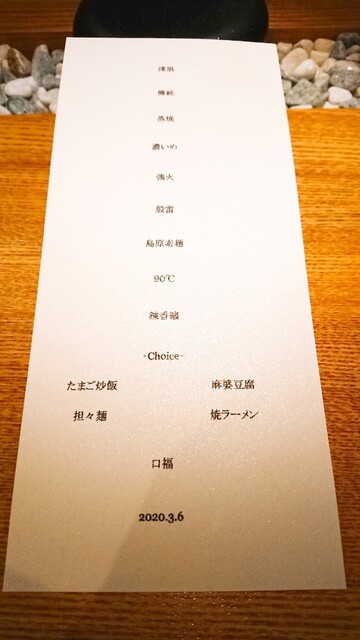 漆黒
傳統
蒸焼
濃いめ
強火
殻雷
島原素麺
90℃
辣香
-Choice-
たまご炒飯 麻婆豆腐
担々麺 焼ラーメン
口福
2020.3.6